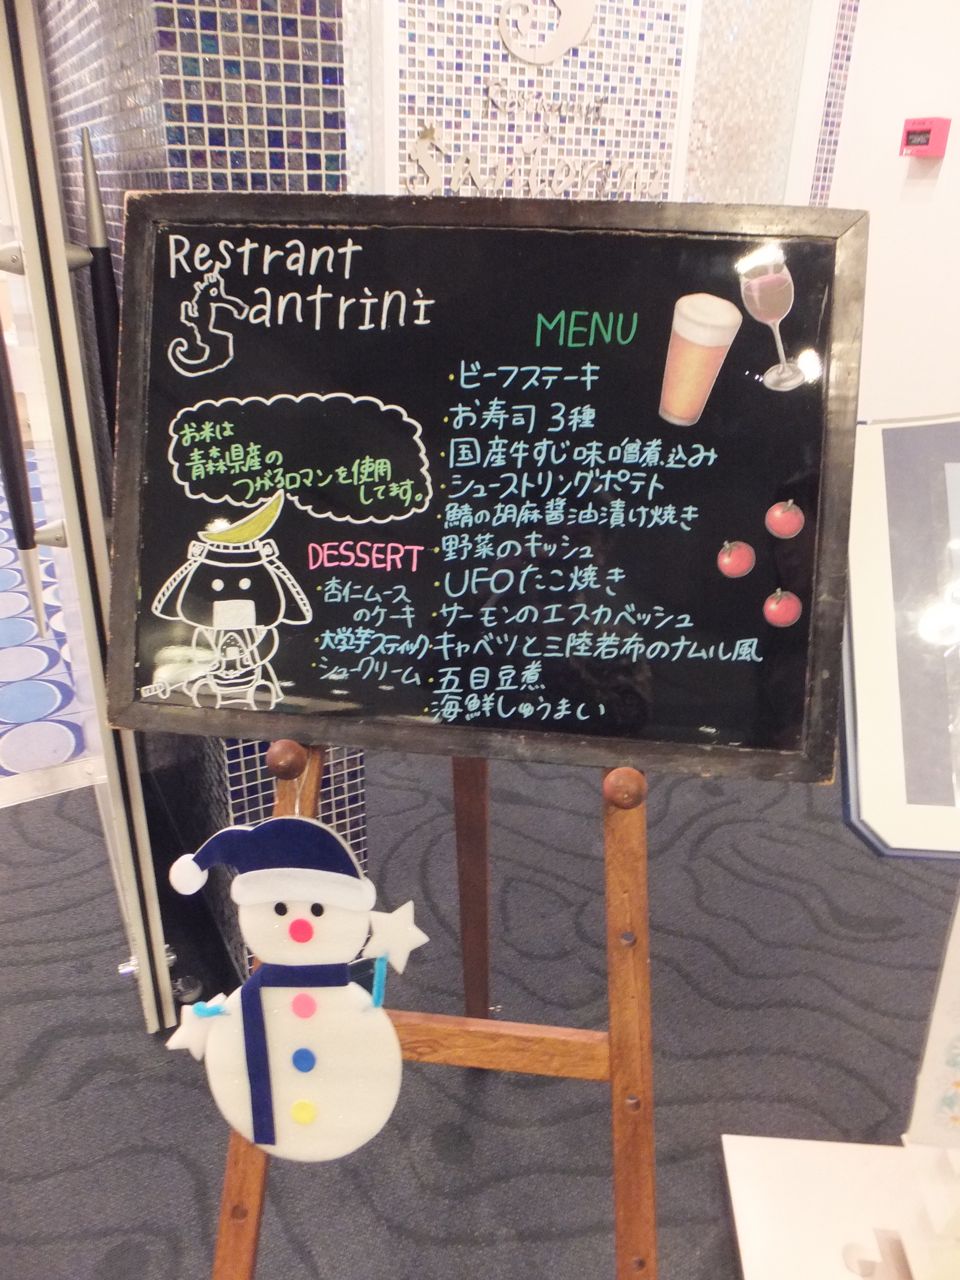 Restaurant
Santorini
Restrant
Santrini
MENU
・ビーフステーキ
・お寿司 3種
・国産牛すじ味噌煮込み
・シューストリングポテト
・鯖の胡麻醤油漬け焼き
・野菜のキッシュ
・UFOたこ焼き
・サーモンのエスカベッシュ
・キャベツと三陸若布のナムル風
・五目豆煮
・海鮮しゅうまい
お米は
青森県産の
つがるロマンを使用
してます。
DESSERT
・杏仁ムース
のケーキ
・大学芋スティック
・シュークリーム